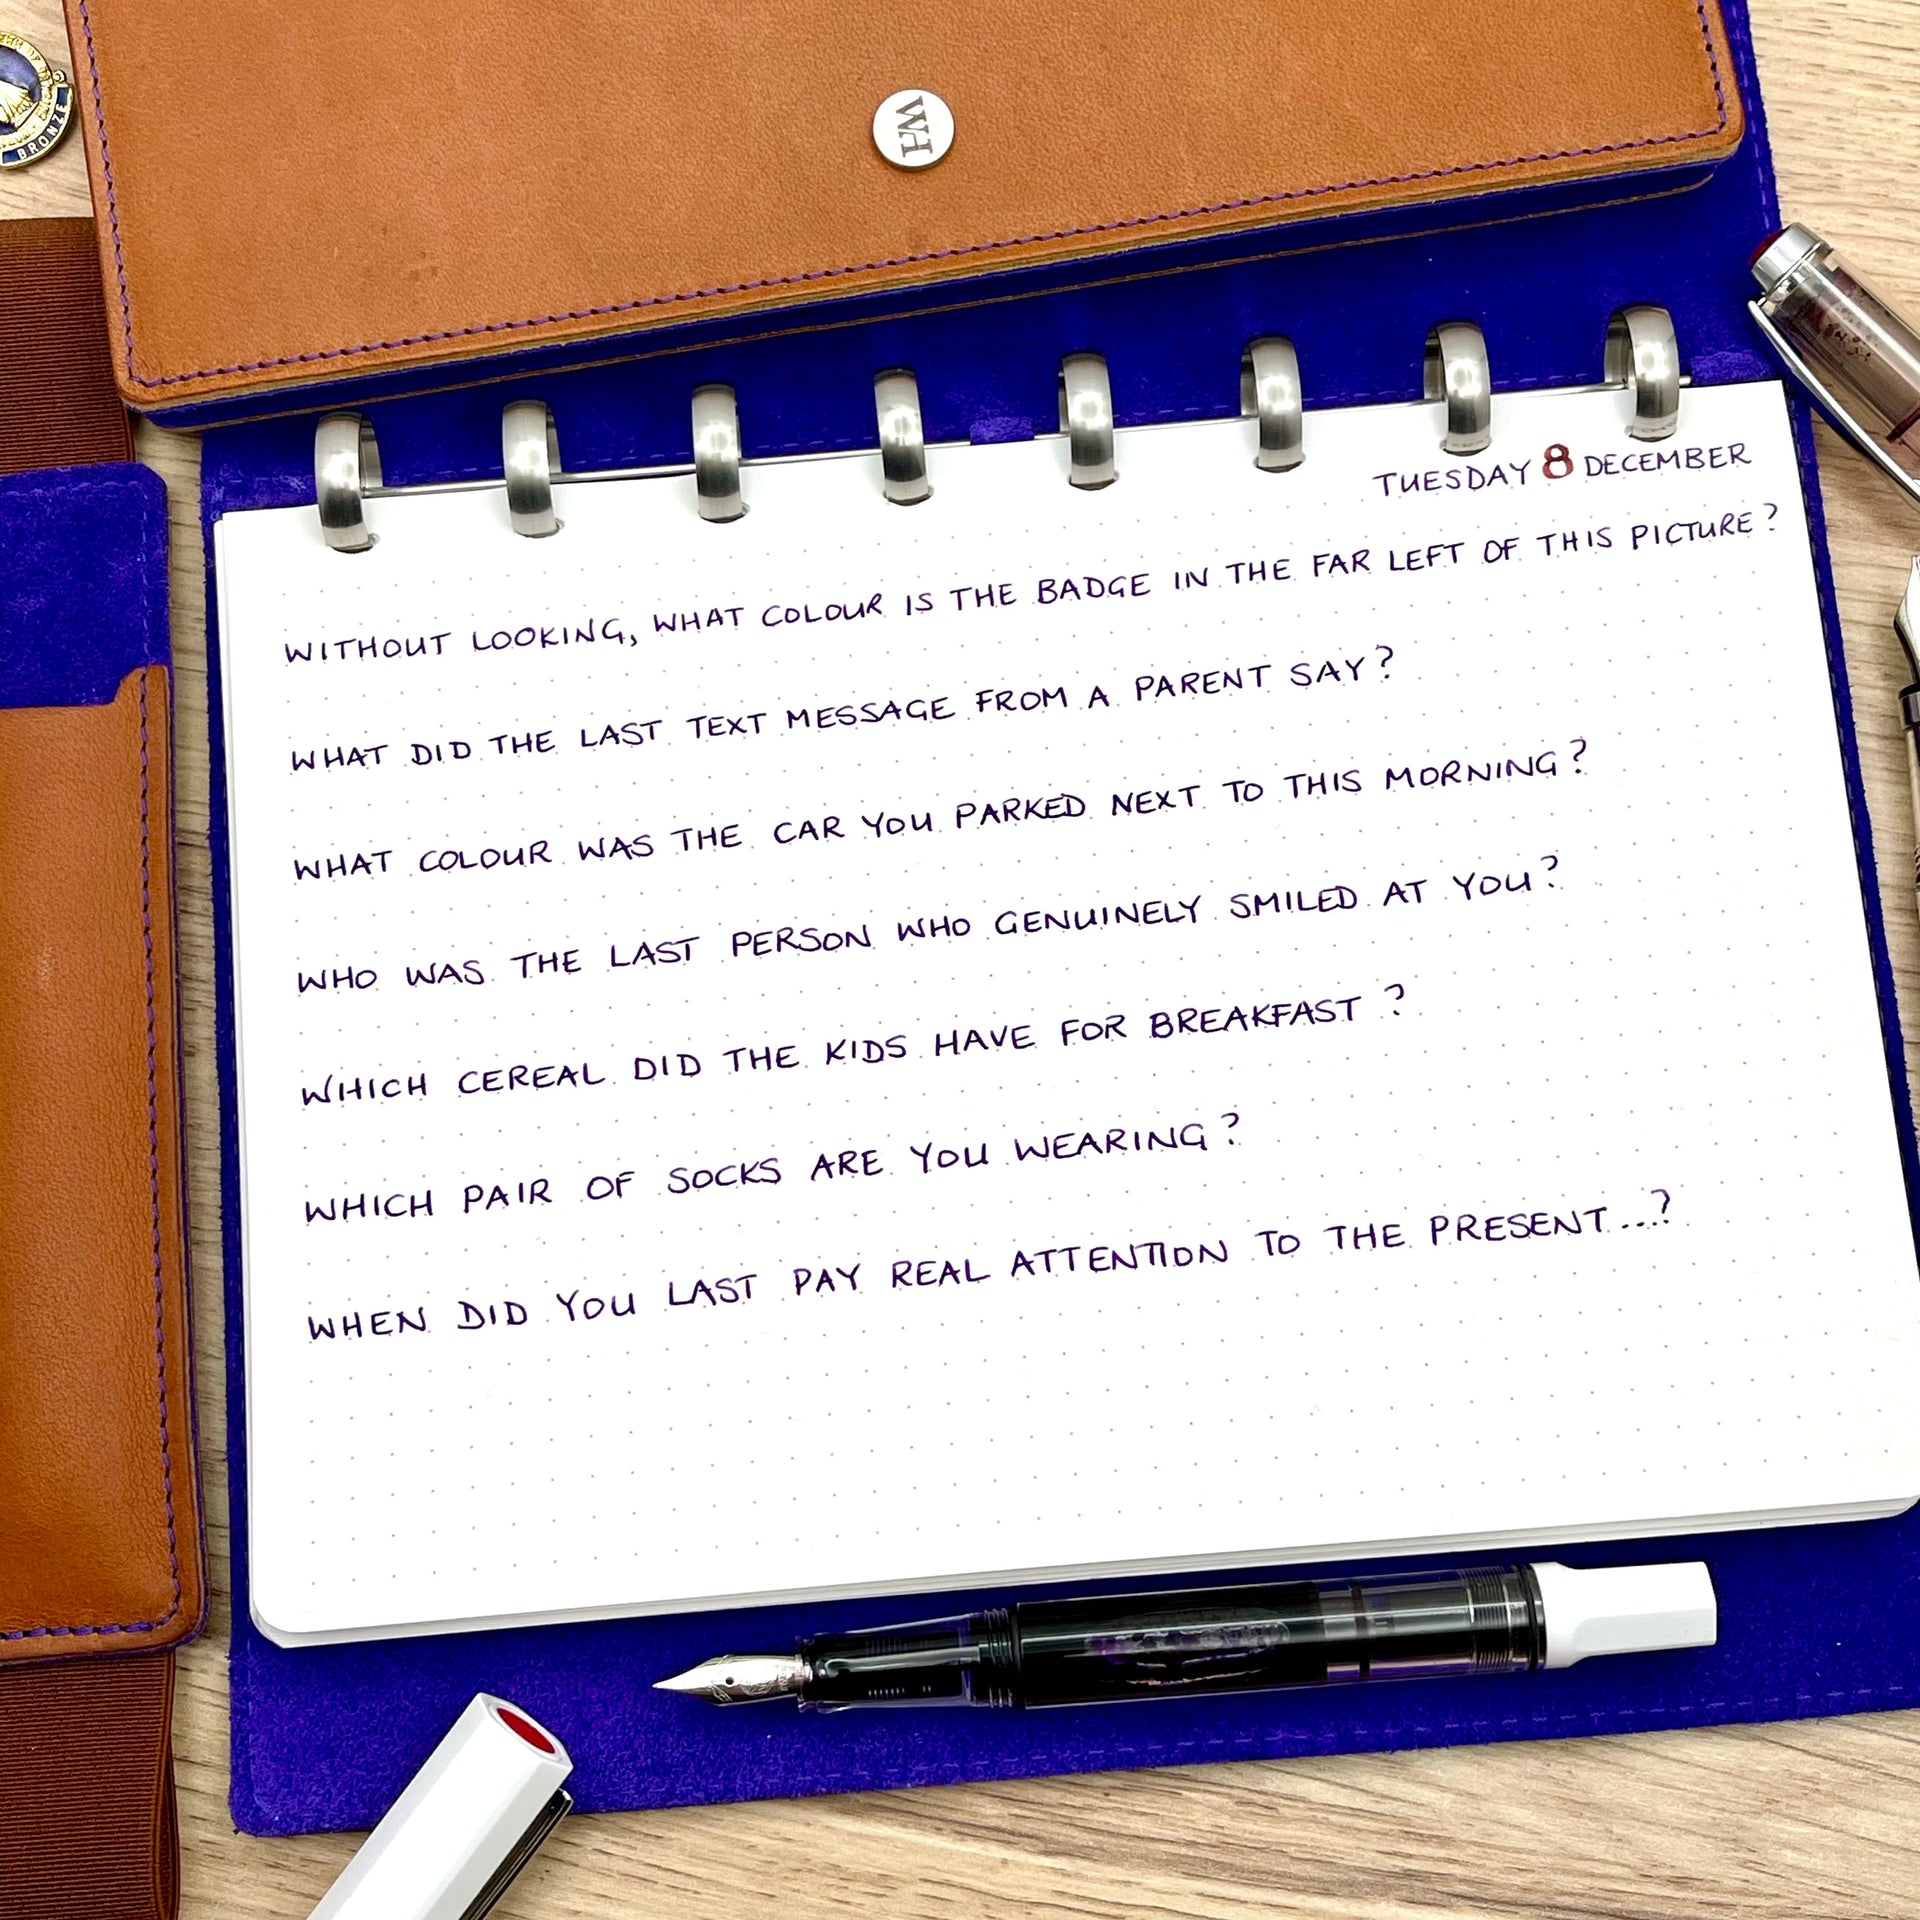 BRONZE
WH
TUESDAY 8 DECEMBER
WITHOUT LOOKING, WHAT COLOUR IS THE BADGE IN THE FAR LEFT OF THIS PICTURE?
WHAT DID THE LAST TEXT MESSAGE FROM A PARENT SAY?
WHAT COLOUR WAS THE CAR YOU PARKED NEXT TO THIS MORNING?
WHO WAS THE LAST PERSON WHO GENUINELY SMILED AT YOU?
WHICH CEREAL DID THE KIDS HAVE FOR BREAKFAST?
WHICH PAIR OF SOCKS ARE YOU WEARING?
WHEN DID YOU LAST PAY REAL ATTENTION TO THE PRESENT...?